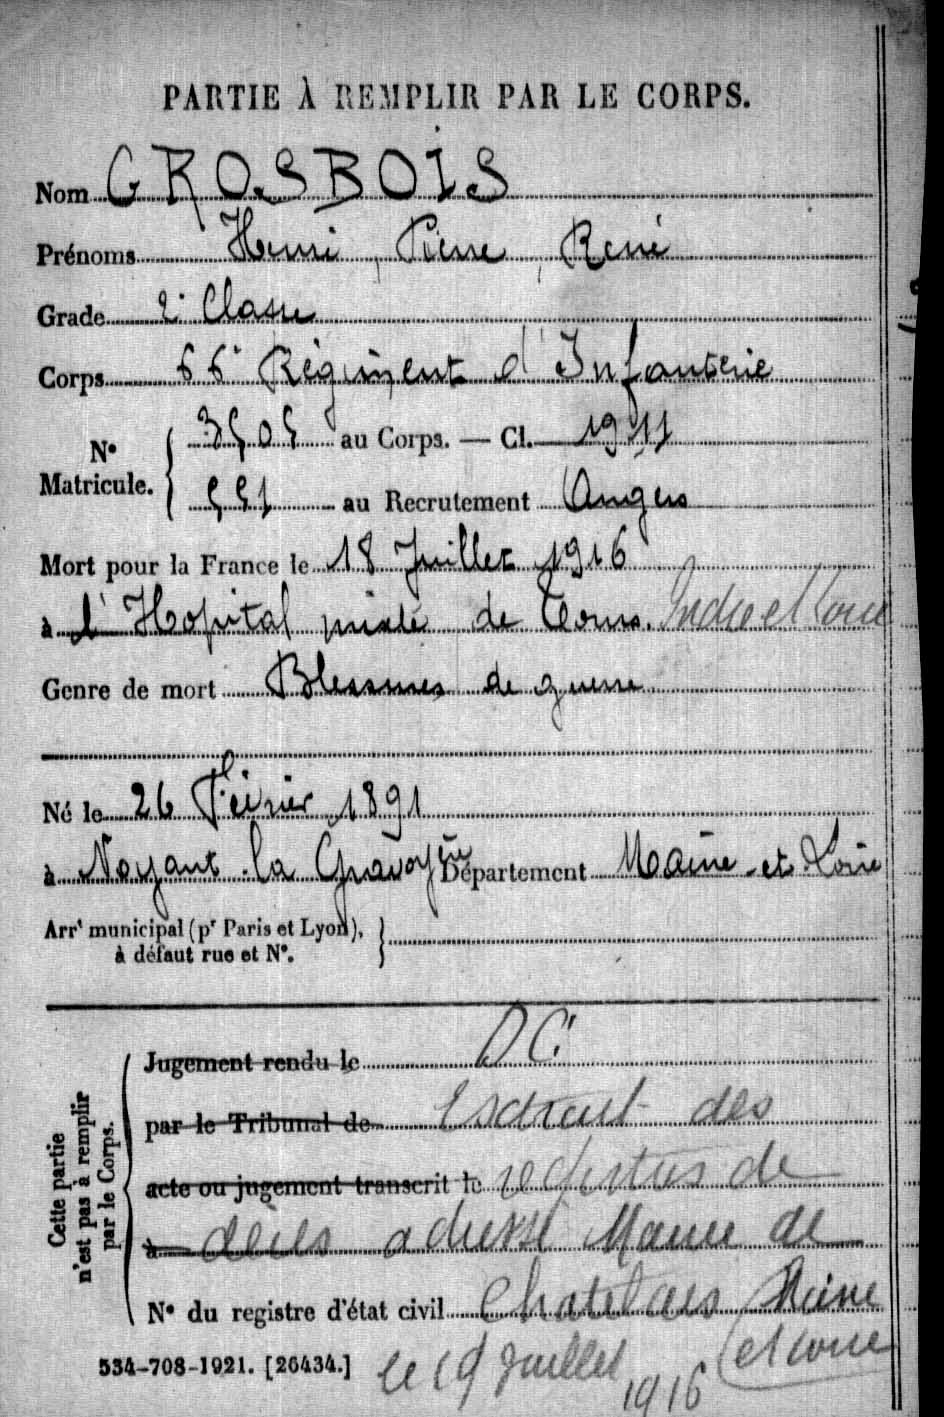 PARTIE À REMPLIR PAR LE CORPS.
Nom GROSBOIS
Prénoms Henri, Pierre, René
Grade 2e Classe
Corps 66e Régiment d'Infanterie
No Matricule. { 3505 au Corps. — Cl. 1911
551 au Recrutement Angers
Mort pour la France le 18 Juillet 1916
à l'Hopital mixte de Tours. Indre et Loire
Genre de mort Blessures de guerre
Né le 26 Février 1891
à Noyant-la Gravoyère Département Maine-et Loire
Arrt municipal (pr Paris et Lyon), à défaut rue et No. }
Cette partie n'est pas à remplir par le Corps. {
Jugement rendu le DC
par le Tribunal de Extrait des
acte ou jugement transcrit le registres de
à décès adressé Mairie de
No du registre d'état civil Chatelais Maine
et Loire
534-708-1921. [26434.] le 19 Juillet 1916